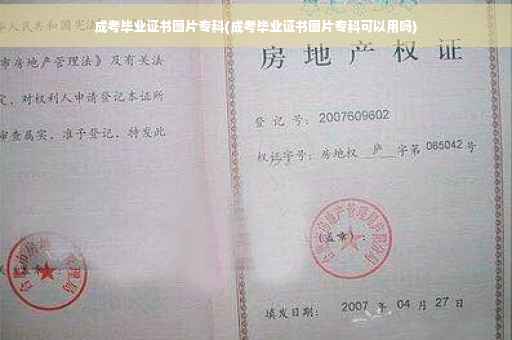 成考毕业证书图片专科(成考毕业证书图片专科可以用吗)
人民共和国宪法
市房地产管理法》及有关法
定，对权利人申请登记本证所
审查属实，准予登记，特发此
房地产权证
登记号：2007609602
权证字号：房地权 庐 字第 065042 号
(盖章)：
填发日期： 2007 年 04 月 27 日